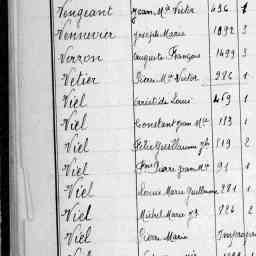 Vengeant Jean Mie Victor 436 1
Vennevier Joseph Marie 1092 3
Verron Auguste François 1499 3
Vétier Pierre Mie Victor 226 1
Viel Aristide Louis 459 1
Viel Constant Jean Mie 113 1
Viel Félix Guillaume 519 2
Viel Pierre Jean Mie 91 1
Viel Louis Marie Guillaume 281 1
Viel Michel Marie 726 2
Viel Pierre Marie